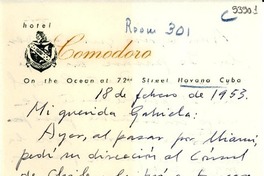 hotel
Room 301
Comodoro
On the Ocean at 72nd Street Havana Cuba
18 de febrero de 1953.
Mi querida Gabriela:
Ayer, al pasar por Miami,
pedí su dirección al Consul
de Chile